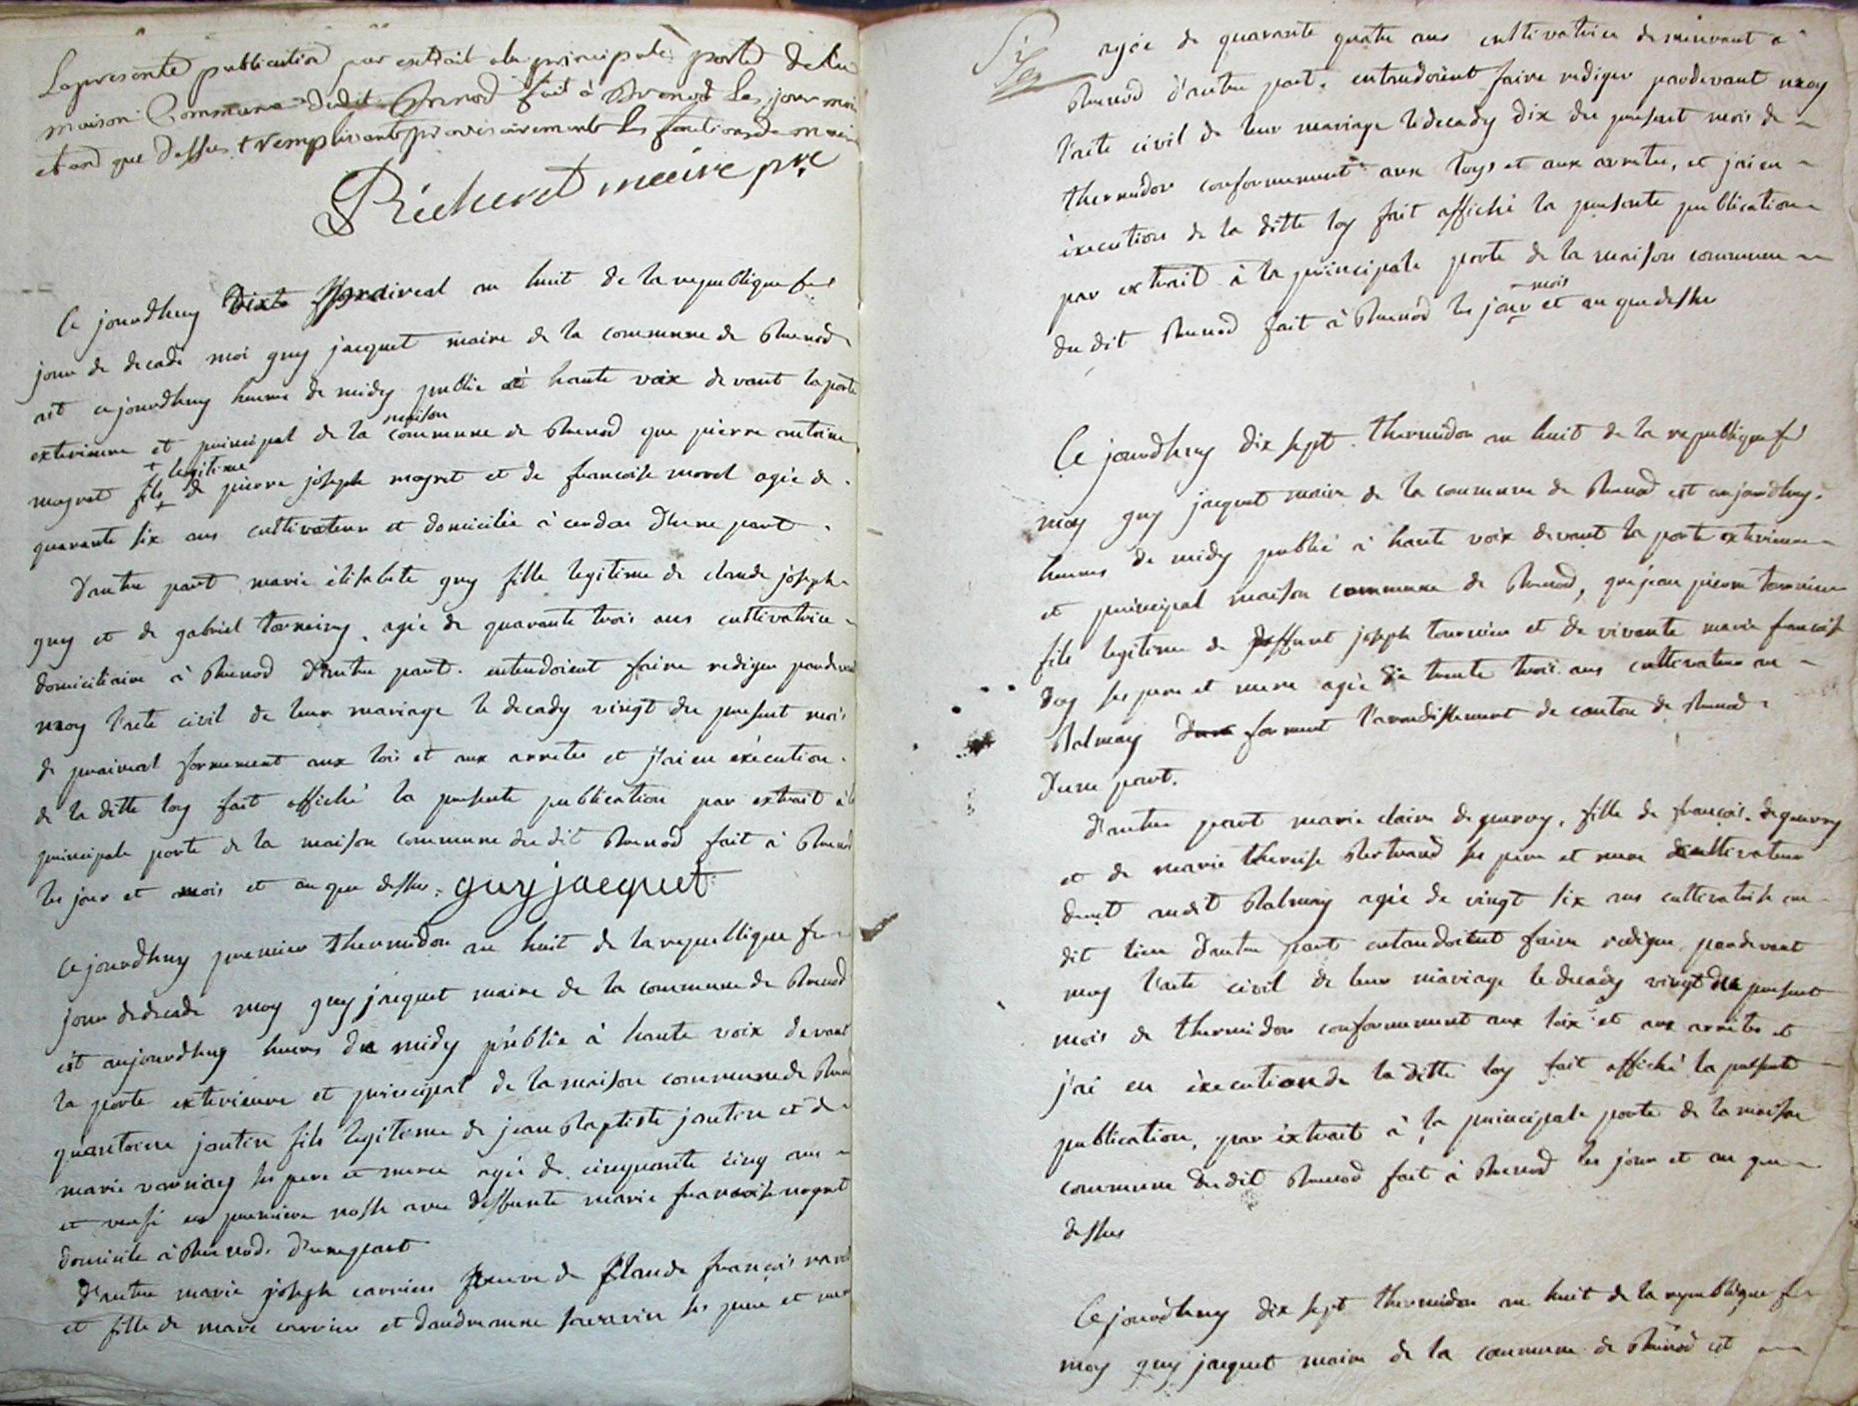 La presente publication par extrait a la principale porte de la
maison Commune dudit Brenod fait à Brenod les jour mois
et and que dessus remplissant provisoirement les fonctions de maire
Richerot meire pre
Ce jourdhuy prairial an huit de la republique
jour de decade moi guy jacquet maire de la commune de Brenod
ait cejourdhuy heure de midy publie à haute voix devant la porte
exterieure et principal de la maison commune de Brenod que pierre antoine
magnet fils legitime de pierre joseph magnet et de francoise morel agée de
quarante six ans cultivateur et domicilie à cerdon dhune part.
Dautre part marie élisabete guy fille legitime de claude joseph
guy et de gabriel agée de quarante trois ans cultivatrice
domiciliaire à Brenod dautre part. entendoient faire rediger pardevant
moy l'acte civil de leur mariage le decady vingt du present mois
de prairial formement aux lois et aux arretes et j'ai en exécution
de la ditte loy fait affiché la presente publication par extrait à la
principale porte de la maison commune du dit Brenod fait à Brenod
les jour et mois et an que dessus. guy jacquet
Ce jourdhuy premier thermidor an huit de la republique fr
jour de decade moy guy jacquet maire de la commune de Brenod
est aujourdhuy heures de midy publie à haute voix devant
la porte exterieure et principal de la maison commune de Brenod
quantoine jantin fils legitime de jean Baptiste jantin et de
marie ses pere et mere agée de cinquante cinq ans
et en premiere avec deffunte marie francoise
domicile à Brenod. d'une part
D'autre marie joseph carrier veuve de Claude françois
et fille de marc carrier et dandreanne ses pere et mere
agée de quarante quatre ans cultivatrice demeurant à
Brenod d'autre part. entendoient faire rediger pardevant moy
l'acte civil de leur mariage le decady dix du present mois de
thermidor conformement aux loys et aux arretes, et j'ai en
éxecution de la ditte loy fait affiché la presente publication
par extrait à la principale porte de la maison commune
du dit Brenod fait à Brenod les jour mois et an que dessus
Ce jourdhuy dix sept thermidor an huit de la republique fr
moy guy jacquet maire de la commune de Brenod est aujourdhuy
heures de midy publié à haute voix devant la porte exterieure
et principal maison commune de Brenod, que jean pierre
fils legitime de deffunt joseph et de vivante marie francoise
ses pere et mere agée de trente trois ans cultivateur au
Balmay forment l'arondissement de canton de Brenod
d'une part.
D'autre part marie claire deguerry, fille de françois deguerry
et de marie therese Bertrand ses pere et mere cultivateur
audit Balmay agée de vingt six ans cultivatrise au
dit lieu d'autre part entendoient faire rediger pardevant
moy l'acte civil de leur mariage le decady vingt du present
mois de thermidor conformement aux loix et aux arretes et
j'ai en éxecution de la ditte loy fait affiché la presente
publication, par éxtrait à la principale porte de la maison
commune du dit Brenod fait à Brenod les jour et an que
dessus
Ce jourdhuy dix sept thermidor an huit de la republique fr
moy guy jacquet maire de la commune de Brenod est